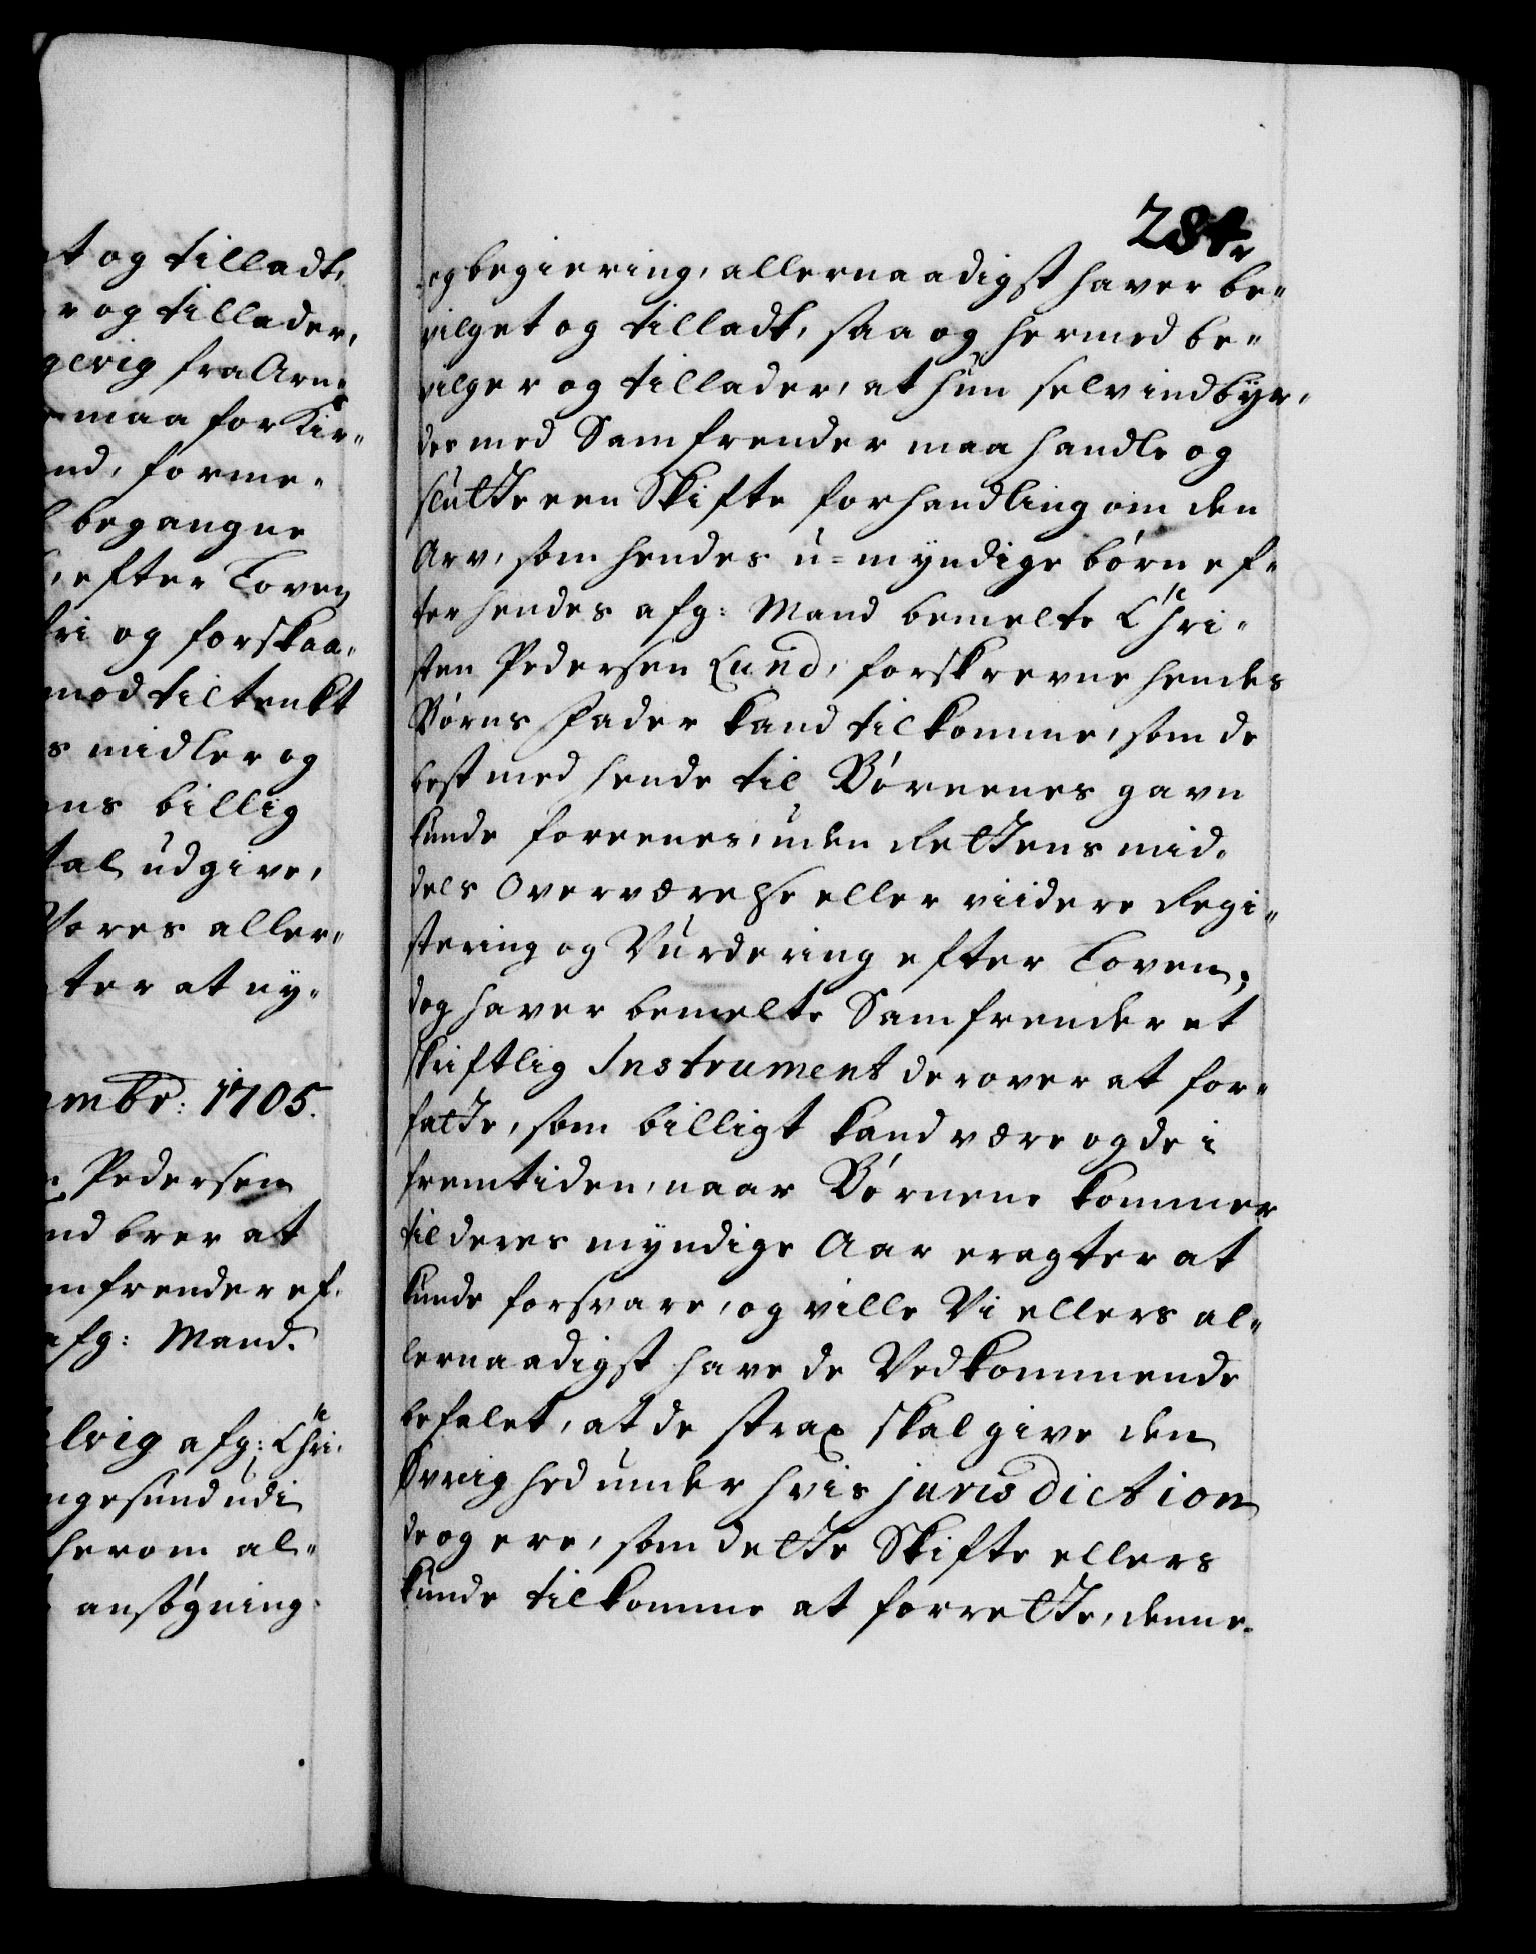 t og tilladt,
r og tillader,
gevig fra Arn-
maa for Kir-
nd, forme-
begangne
, efter Loven
fri og forskaa-
mod tiltenkt
s midler og
ns billig
tal udgive,
Vores aller-
ter at ny-
mbr: 1705.
Pedersen
nd brer at
mfrender ef-
afg: Mand.
lvig afg: Chri-
ngesund udi
herom al-
ansøgning
284
og begiering, allernaadigst haver be-
vilget og tilladt, saa og hermed be-
vilger og tillader, at hun selv indbyr-
des med Samfrender maa handle og
slutte een Skifte forhandling om den
Arv, som hendes u-myndige børn ef-
ter hendes afg: Mand bemelte Chri-
sten Pedersen Lund, forskrevne hendes
Børns Fader kand tilkomme, som de
best med hende til Børnenes gavn
kunde foreenes, uden Rettens mid-
dels Overværelse eller viidere Regi-
stering og Vurdering efter Loven,
dog haver bemelte Samfrender et
skriftlig Instrument derover at for-
fatte, som billigt kand være og de i
fremtiden, naar Børnene kommer
til deres myndige Aar eragter at
kunde forsvare, og ville Vi ellers al-
lernaadigst have de Vedkommende
befalet, at de strax skal give den
Øvrighed under hvis jurisdiction
de og ere, som dette Skifte ellers
kunde tilkomme at forrette, denne